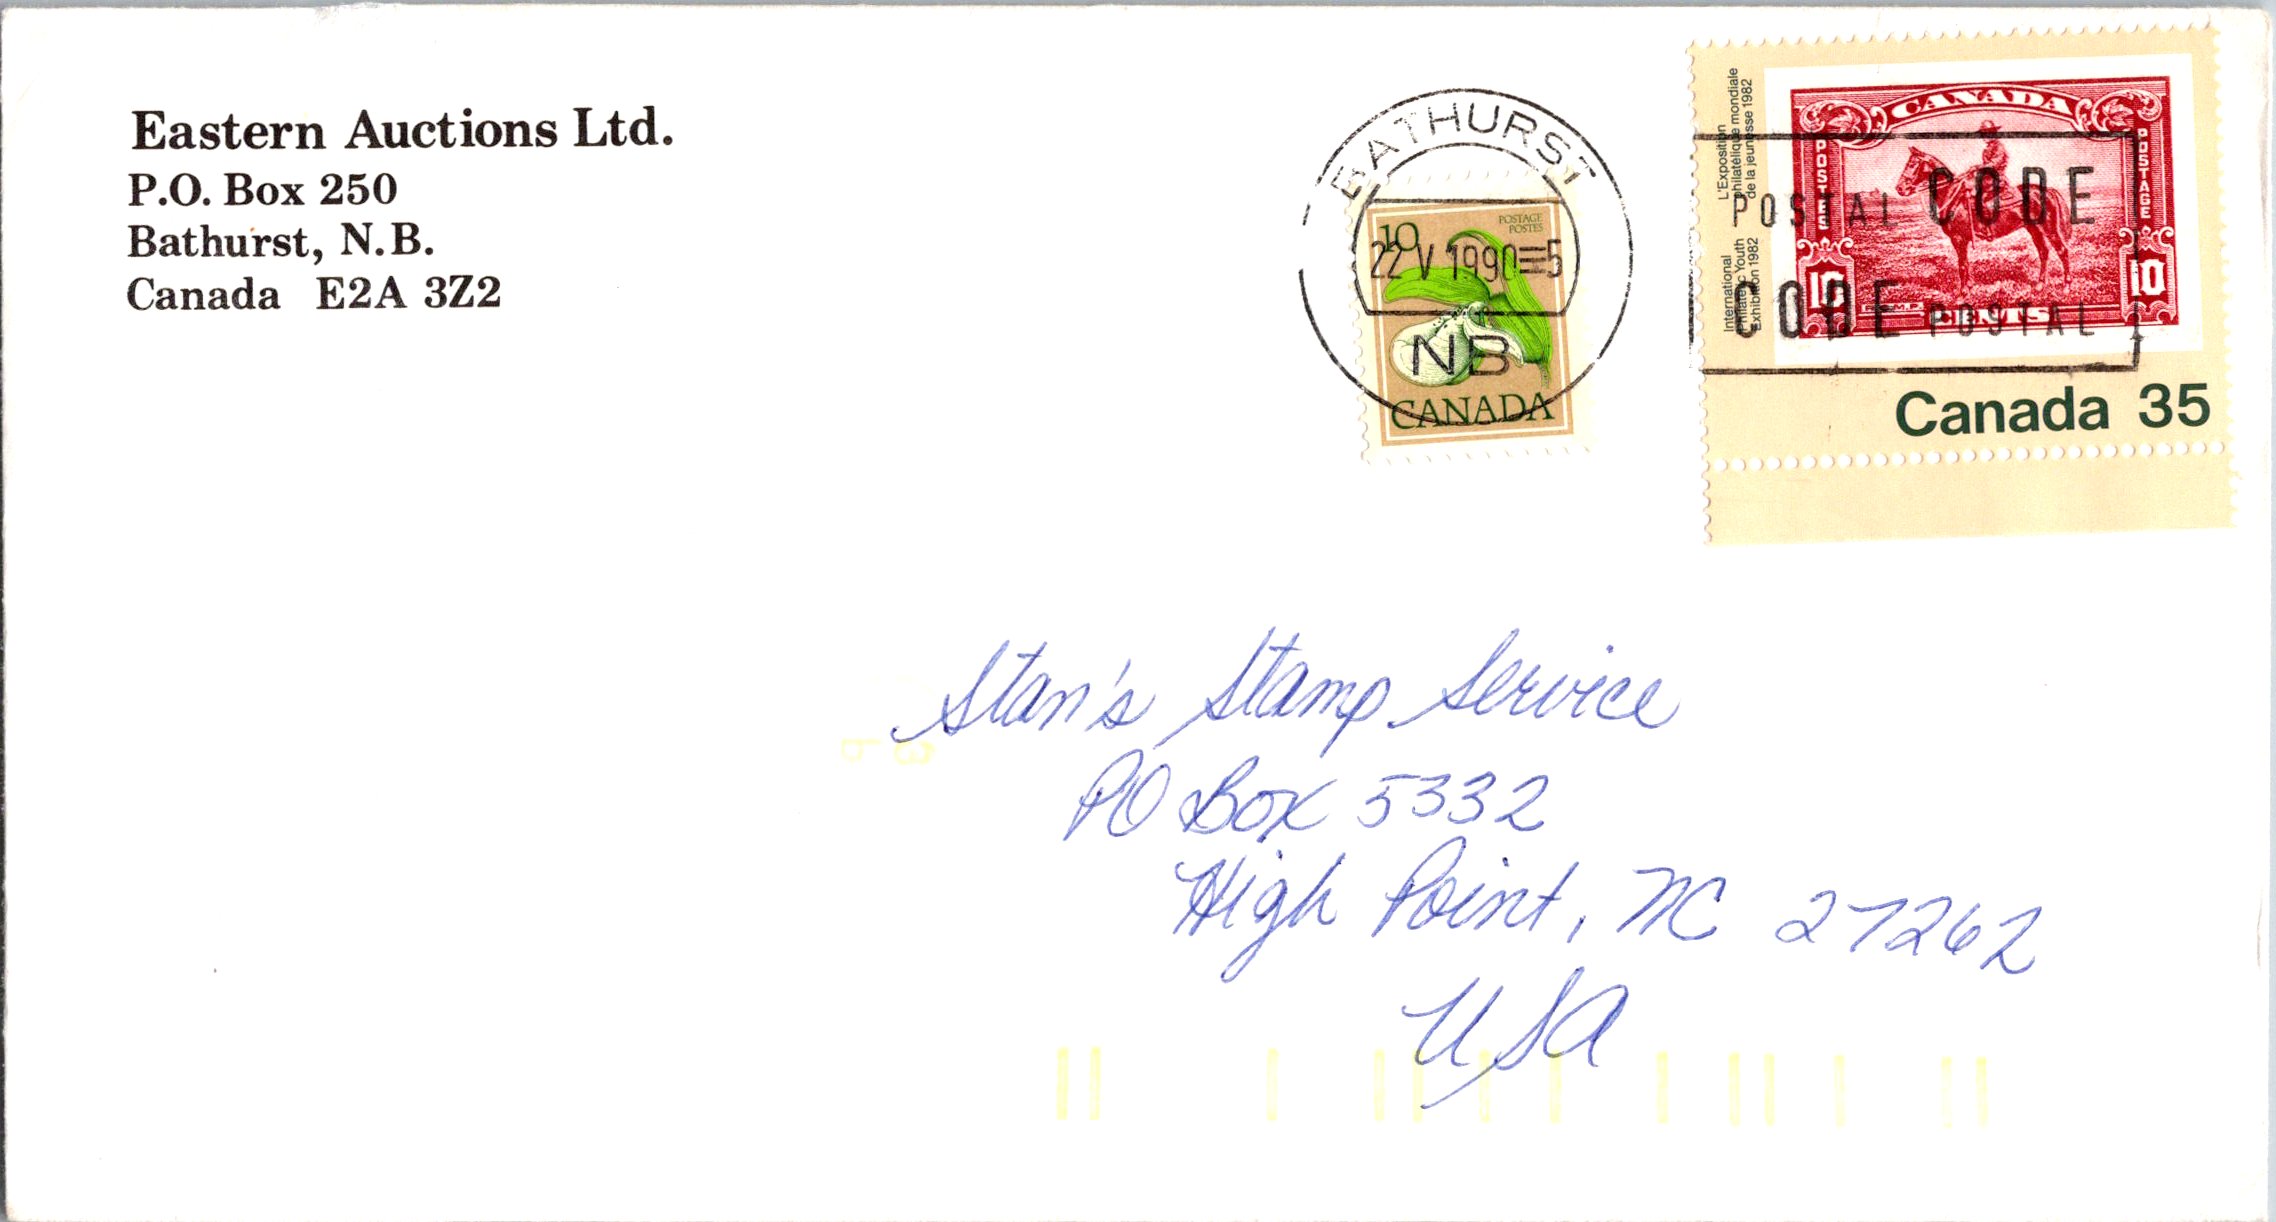 Eastern Auctions Ltd.
P.O. Box 250
Bathurst, N.B.
Canada E2A 3Z2
BATHURST
22 V 1990 5
NB
10
POSTAGE
POSTES
CANADA
L'Exposition
philatélique mondiale
de la jeunesse 1982
International
Philatelic Youth
Exhibition 1982
CANADA
POSTES
POSTAGE
10
10
CENTS
POSTAL CODE
CODE POSTAL
Canada 35
Stan's Stamp Service
PO Box 5332
High Point, NC 27262
USA